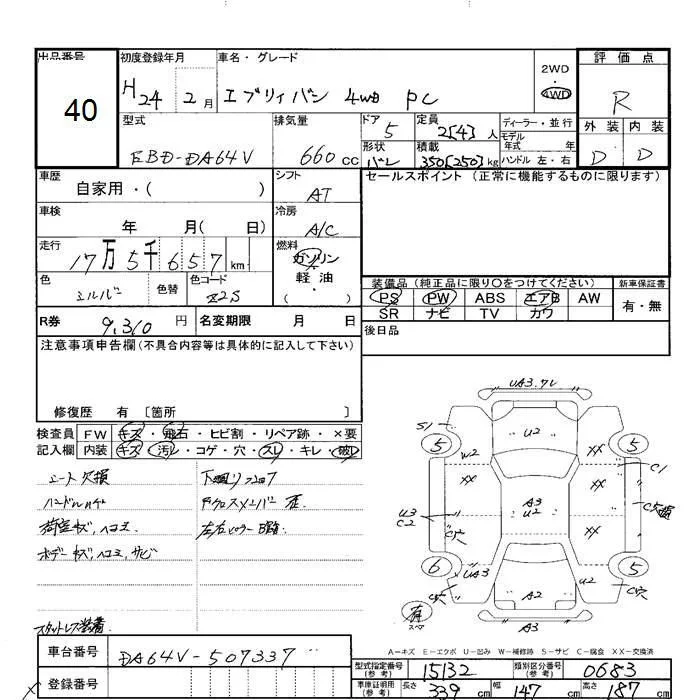 出品番号
40
初度登録年月
H24 2月
車名・グレード
エブリィバン 4WD PC
2WD
4WD
評価点
R
外装 内装
D D
型式
EBD-DA64V
排気量
660 cc
ドア
5
形状
バン
定員
2[4] 人
積載
350[250] kg
ディーラー・並行
モデル
年式 年
ハンドル 左・右
車歴
自家用・( )
シフト
AT
セールスポイント (正常に機能するものに限ります)
車検
年 月( 日)
冷房
A/C
走行
17万5千657 km
燃料
ガソリン
・
軽油
・( )
色
シルバー
色替
色コード
Z2S
装備品 (純正品に限り○をつけてください)
新車保証書
PS PW ABS エアB AW
SR ナビ TV カワ
有・無
R券 9,310 円
名変期限 月 日
後日品
注意事項申告欄(不具合内容等は具体的に記入して下さい)
修復歴 有 〔箇所 〕
検査員
記入欄
FW キズ・飛石・ヒビ割・リペア跡・×要
内装 キズ・汚レ・コゲ・穴・スレ・キレ・破レ
シート欠損
ハンドル
荷室キズ,ヘコミ
ボデーキズ,ヘコミ,サビ
下廻り
Fクロスメンバー
左右ピラー
スタッドレス装着
UA3.ワレ
S1
5
U2
5
W2
XX
XX
C1
U3
C2
A3
U2
XX
C欠損
C穴
6
UA3
U2
5
C穴
C穴
有
スペア
A2
A3
A-キズ E-エクボ U-凹み W-補修跡 S-サビ C-腐食 XX-交換済
車台番号 DA64V-507337
登録番号
型式指定番号
(参考)
15132
類別区分番号
(参考)
0683
車庫証明用
(参考)
長さ 339 cm 幅 147 cm 高さ 187 cm